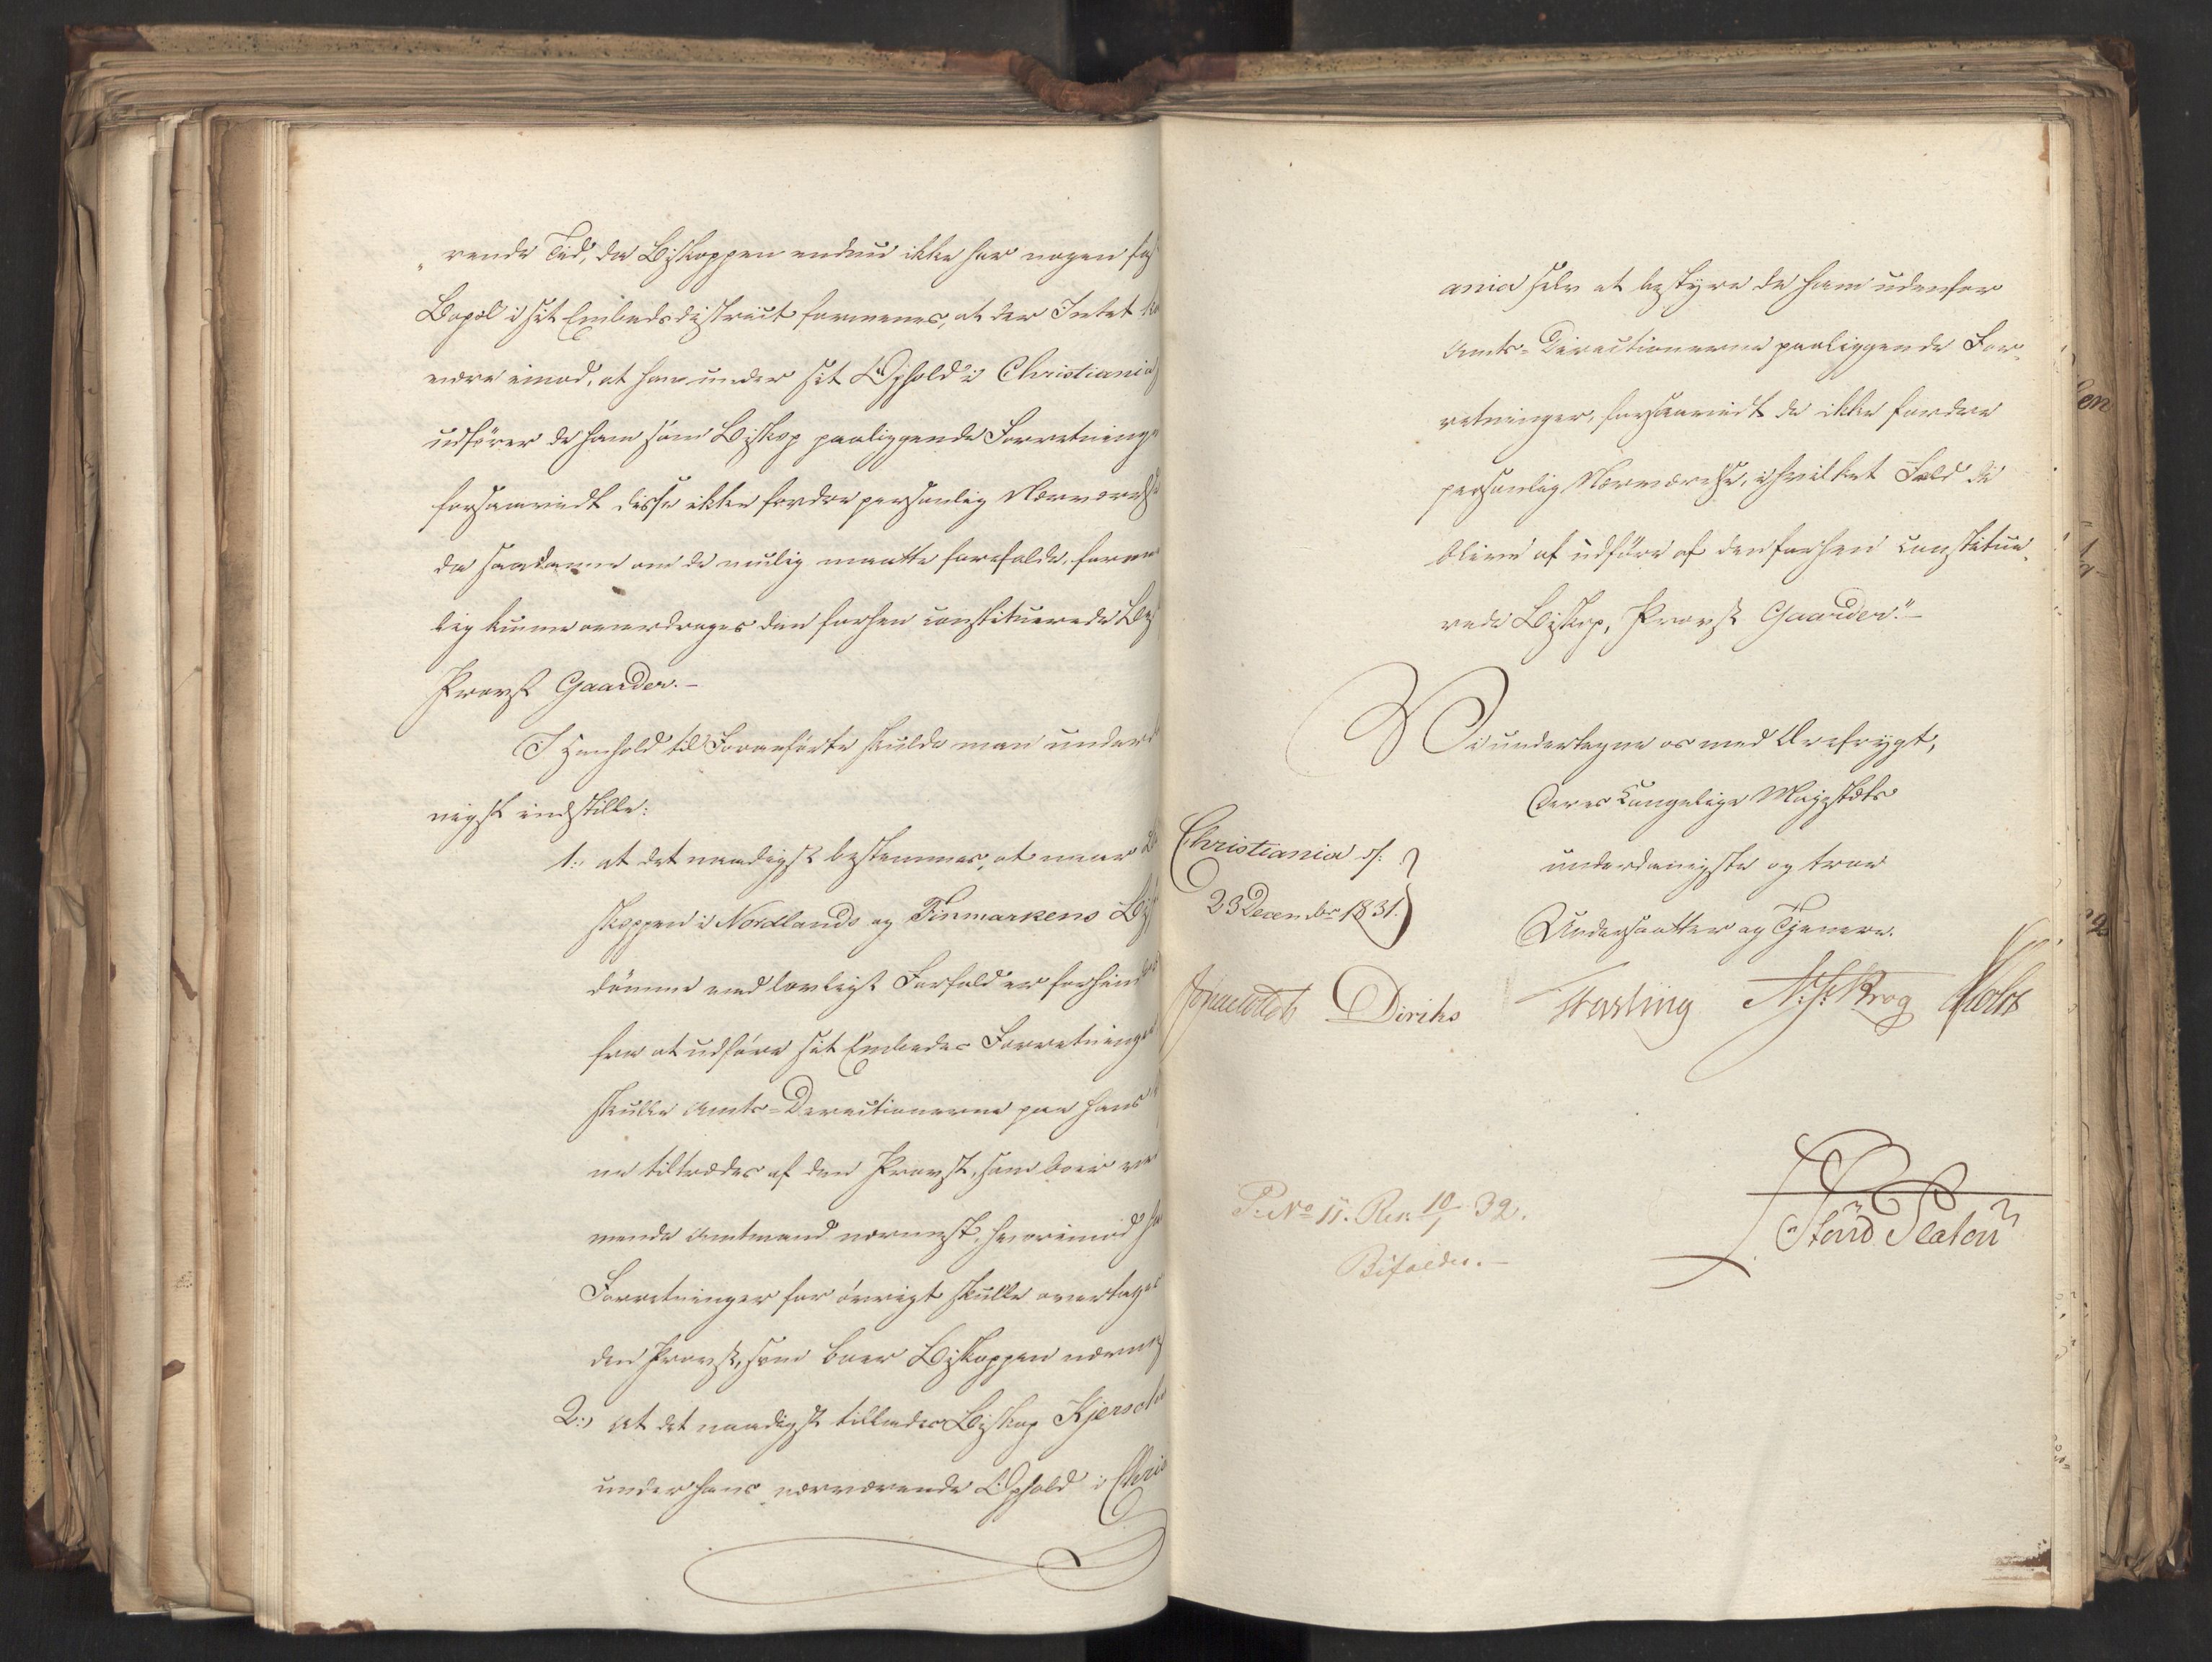 rende Tid, da Biskoppen endnu ikke har nogen fast
Bopæl i sit Embedsdistrict formenes, at der Intet kan
være imod, at han under sit Ophold i Christiania
udfører de ham som Biskop paaliggende Forretninger
forsaavidt disse ikke fordre personlig Nærværelse
da saadanne om de mulig maatte forefalde, formeent-
lig kunne overdrages den forhen constituerede Biskop
Provst Gaarder.-
I Henhold til Foranførte skulde man underda-
nigst indstille:
1:, at det naadigst bestemmes, at naar Bi-
skoppen i Nordlands og Finmarkens Bispe-
dømme ved lovligt Forfald er forhindret
fra at udføre sit Embedes Forretninger
skulle Amts-Directionerne paa hans
ne tiltrædes af den Provst, som boer ved-
mende Amtmand nærmest, hvorimod hans
Forretninger for øvrigt skulle overtages
den Provst, som boer Biskoppen nærmest
2:, at det naadigst tillades Biskop Kjerschow
under hans nærværende Ophold i Chris
ania selv at bestyre de ham udenfor
Amts-Directionerne paaliggende For-
retninger, forsaavidt de ikke fordre
personlig Nærværelse, i hvilket Fald de
blive at udføre af den forhen constitue-
rede Biskop, Provst Gaarder."-
Vi undertegne os med Ærefrygt,
Deres Kongelige Majestæts
underdanigste og troe
Undersaatter og Tjenere.
Christiania d:
23 Decembr 1831.
Diriks
Fasting
Krog
Holst
P. No 11. Res. 10/1 32.
Bifaldes.-